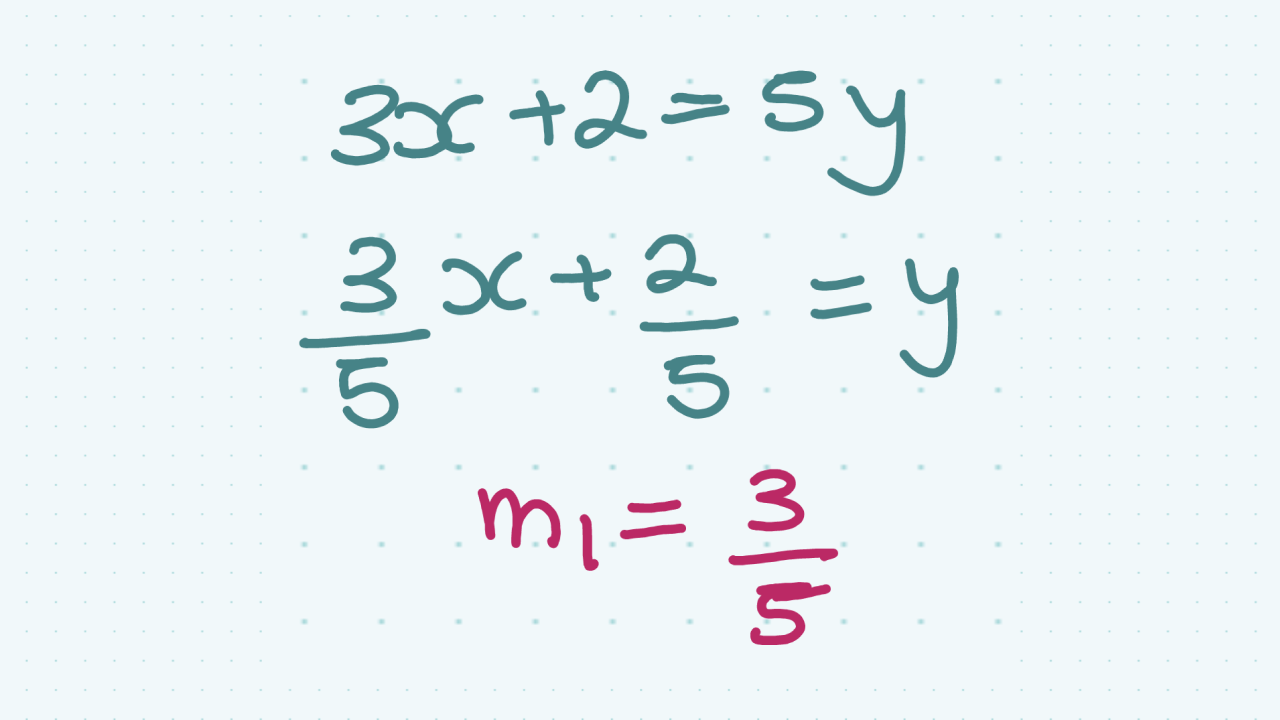 3x + 2 = 5y
3/5 x + 2/5 = y
m₁ = 3/5